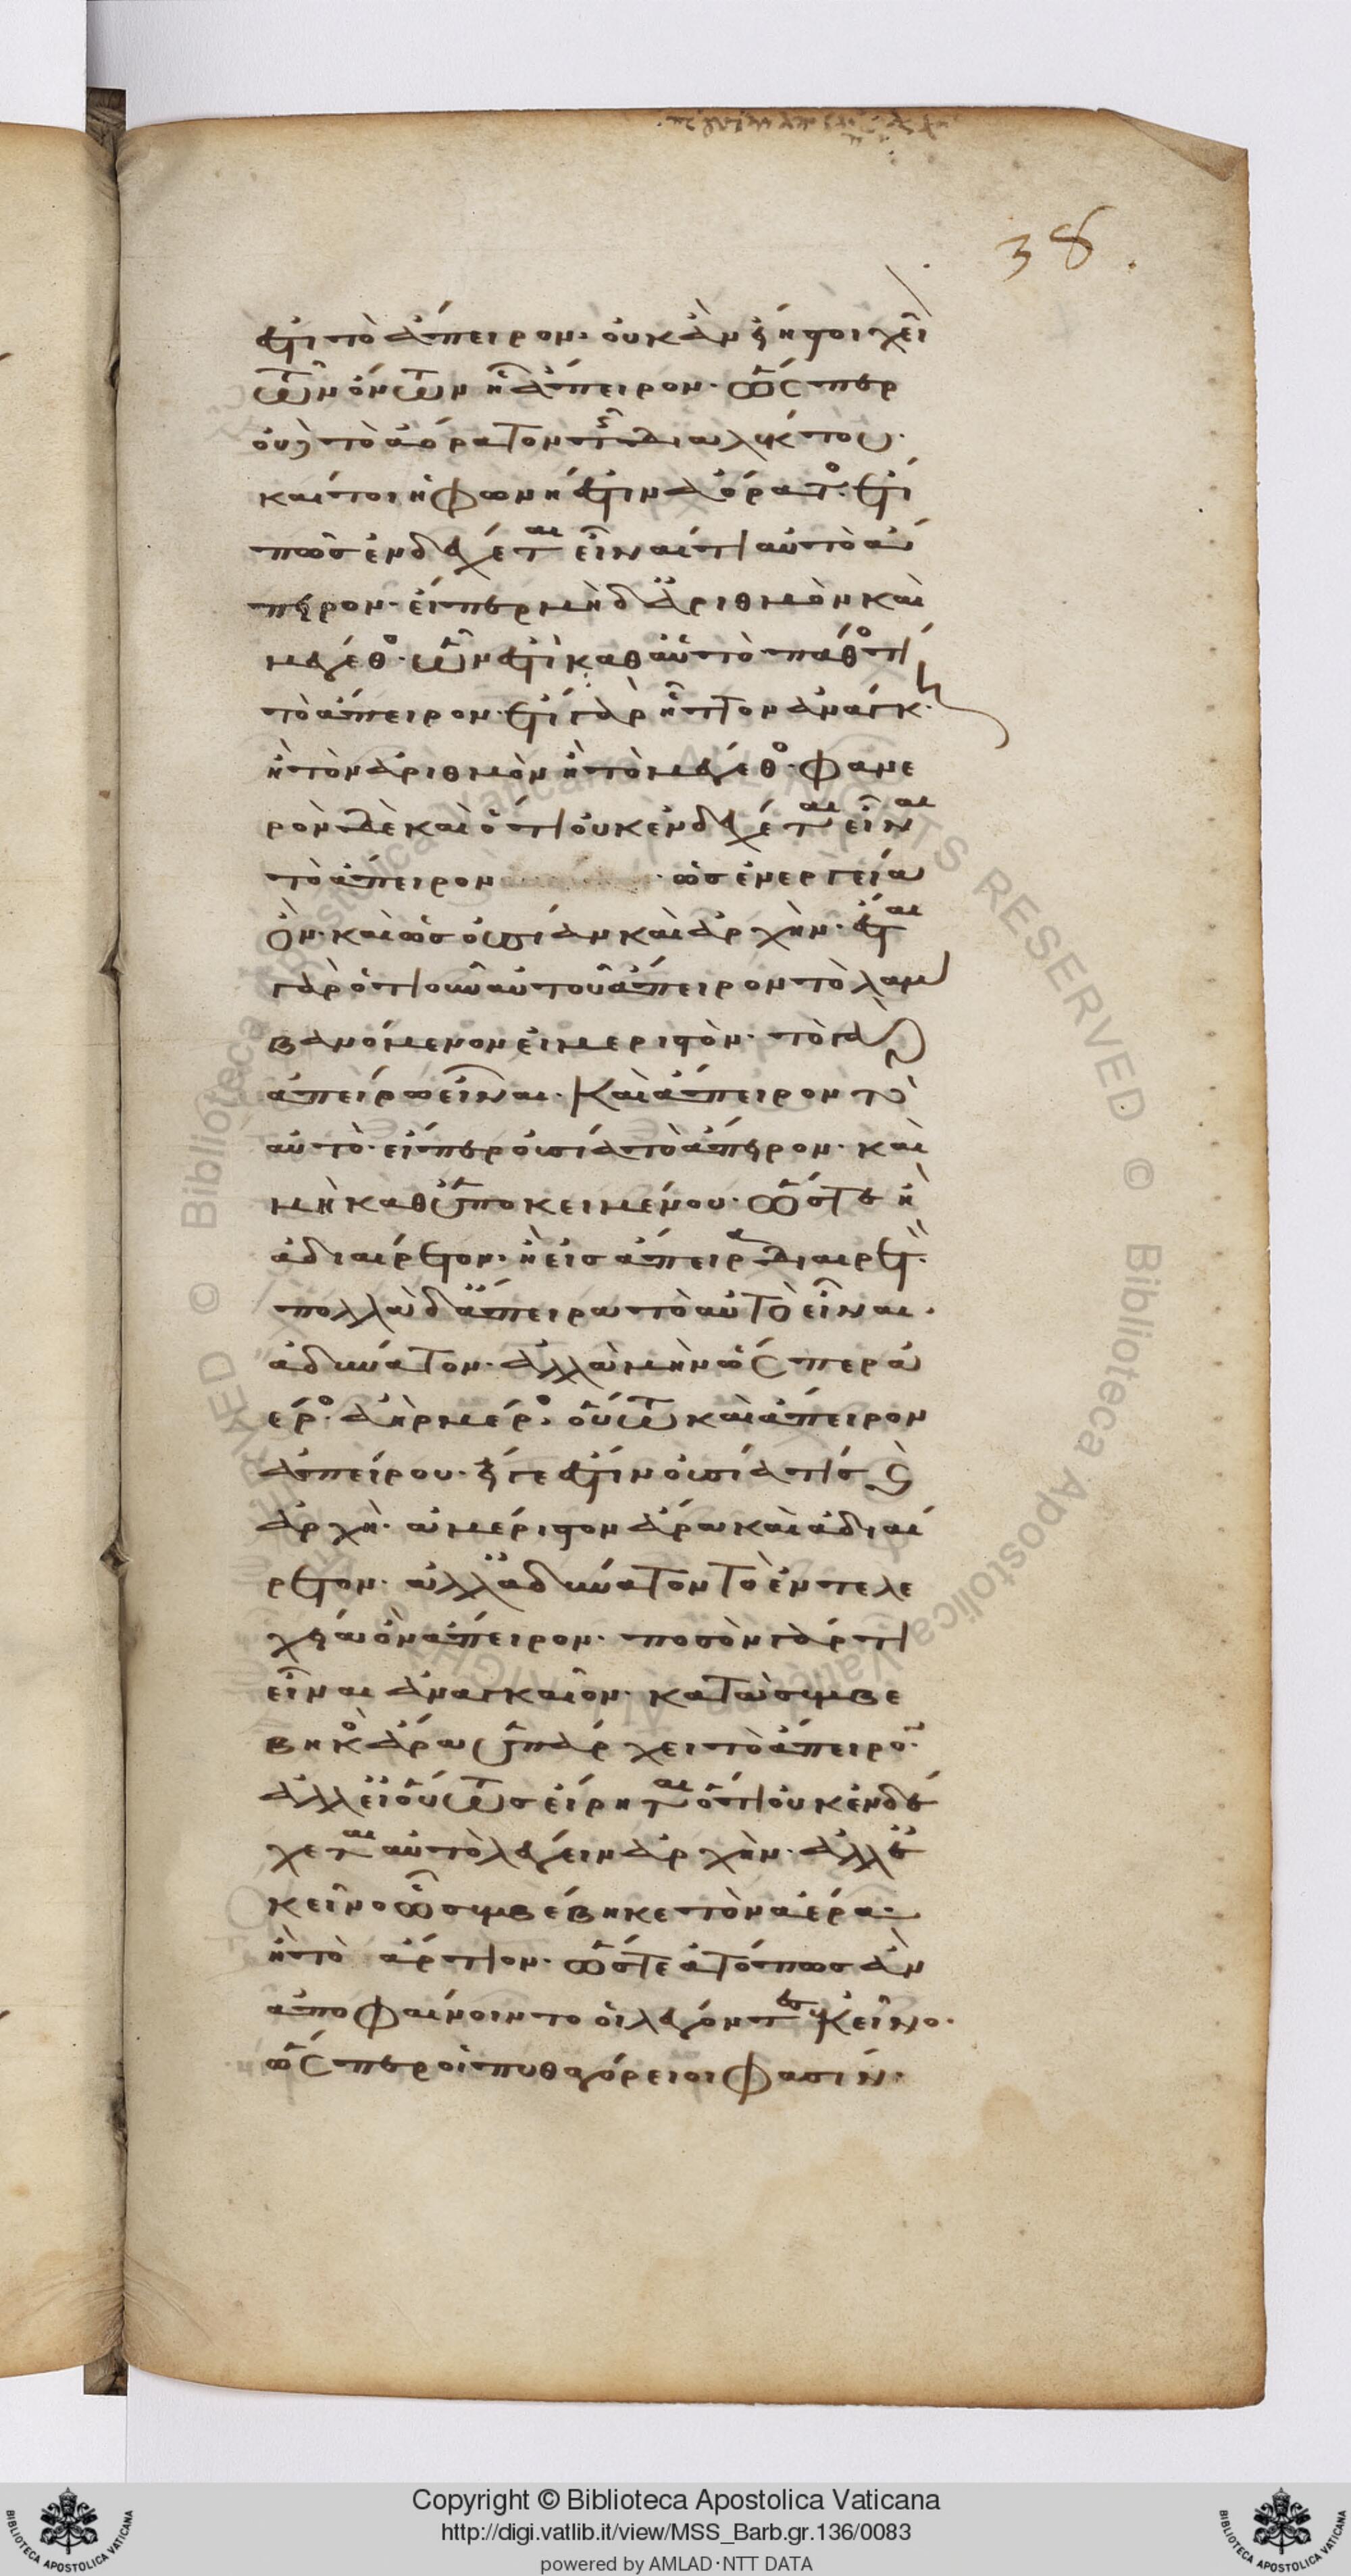 ἐστὶ τὸ ἄπειρον· οὐκ ἂν εἴη στοιχεῖ
τῶν ὄντων ἧ ἄπειρον· ὥσπερ
οὐδὲ τὸ ἀόρατον τῆς διαλέκτου·
καίτοι ἡ φωνή ἐστιν ἀόρατος· ἔτι
πῶς ἐνδέχεται εἶναί τι αὐτὸ ἄ
πειρον· εἴπερ μὴ δ ἀριθμὸν καὶ
μέγεθος· ὧν ἐστὶ καθ αὑτὸ πάθος τί
τὸ ἄπειρον· ἔτι γὰρ ἧττον ἀνάγκη·
ἢ τὸν ἀριθμὸν ἢ τὸ μέγεθος· φανε
ρὸν δὲ καὶ ὅτι οὐκ ἐνδέχεται εἶναι
τὸ ἄπειρον · ὡς ἐνεργεία
ὂν· καὶ ὡς οὐσίαν καὶ ἀρχὴν· ἔσται
γὰρ ὁτιοῦν αὐτοῦ ἄπειρον τὸ λαμ
βανόμενον εἰ μεριστὸν· τὸ γὰρ
ἀπείρω εἶναι· καὶ ἄπειρον τὸ
αὐτὸ· εἴπερ οὐσία τὸ ἄπειρον· καὶ
μὴ καθ ὑποκειμένου· ὥστε ἢ
ἀδιαίρετον· ἢ εἰς ἄπειρα διαιρετὸν·
πολλὰ δ ἄπειρα τὸ αὐτὸ εἶναι·
ἀδύνατον· ἀλλὰ μὴν ὥσπερ ἀ
έρος ἀὴρ μέρος· οὕτω καὶ ἄπειρον
ἀπείρου· εἴγε ἐστὶν οὐσία τίς καὶ
ἀρχὴ· ἀμέριστον ἄρα καὶ ἀδιαί
ρετον· ἀλλ ἀδύνατον τὸ ἐντελε
χεία ὂν ἄπειρον· ποσὸν γὰρ τι
εἶναι ἀναγκαῖον· κατὰ συμβε
βηκὸς ἄρα ὑπάρχει τὸ ἄπειρον·
ἀλλ εἰ οὕτως εἴρηται ὅτι οὐκ ἐνδέ
χεται αὐτὸ λέγειν ἀρχὴν· ἀλλ ἐ
κεῖνο ὧ συμβέβηκε τὸν ἀέρα·
ἢ τὸ ἄρτιον· ὥστε ἀτόπως ἂν
ἀποφαίνοιντο οἱ λέγοντες κεῖνο·
ὥσπερ οἱ πυθαγόρειοι φασίν·
38.
© Biblioteca Apostolica Vaticana ALL RIGHTS RESERVED © Biblioteca Apostolica Vaticana ALL RIGHTS RESERVED
Copyright © Biblioteca Apostolica Vaticana
http://digi.vatlib.it/view/MSS_Barb.gr.136/0083
powered by AMLAD·NTT DATA
BIBLIOTECA APOSTOLICA VATICANA
BIBLIOTECA APOSTOLICA VATICANA